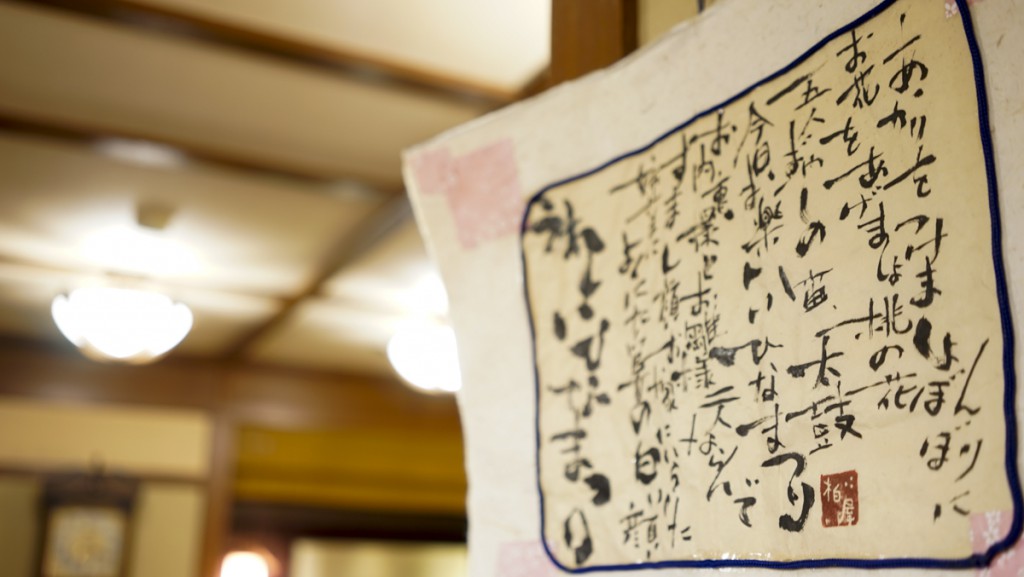 一、あかりをつけましょぼんぼりに
お花をあげましょ桃の花
五人ばやしの笛、太鼓
今日は楽しいひなまつり
お内裏様とお雛様 二人ならんで
すまし顔 お嫁にいらした
姉さまによくにた官女の白い顔
嬉しいひなまつり